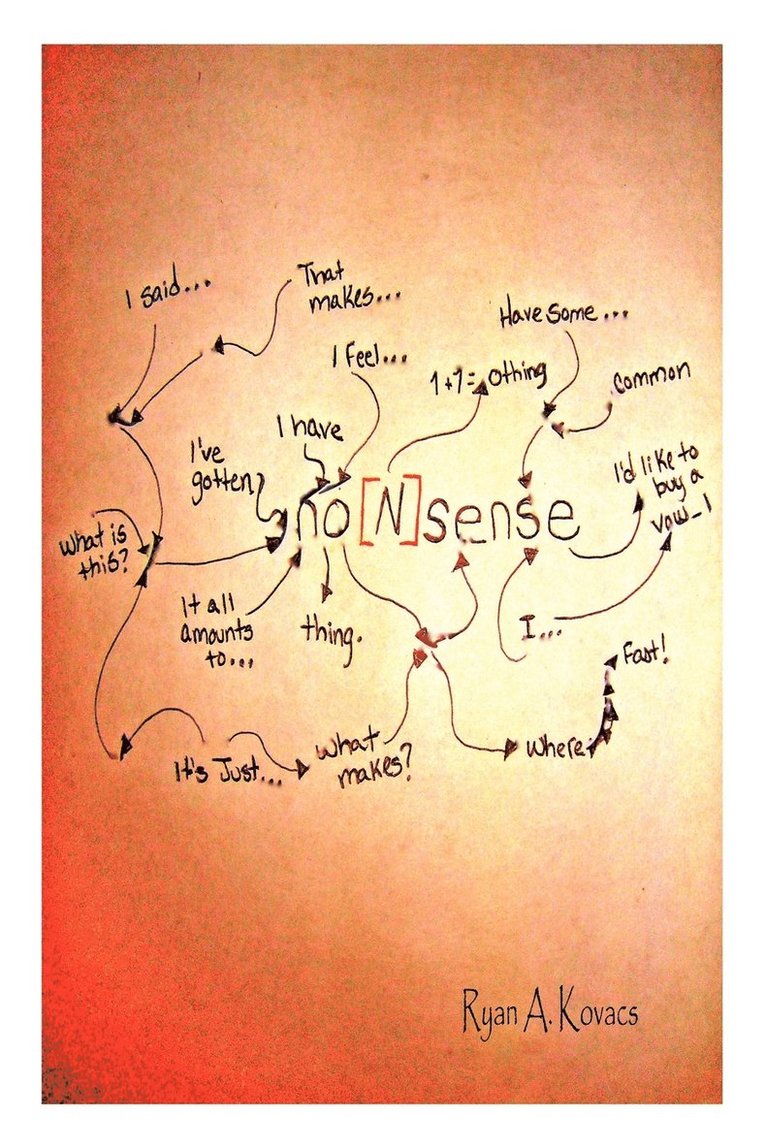 I said...
That
makes...
Have some...
I feel...
1+1= othing
common
I have
I've
gotten
I'd like to
buy a
vow_l
no[N]sense
What is
this?
It all
amounts
to...
thing.
I...
Fast!
It's Just...
What
makes?
Where
Ryan A. Kovacs